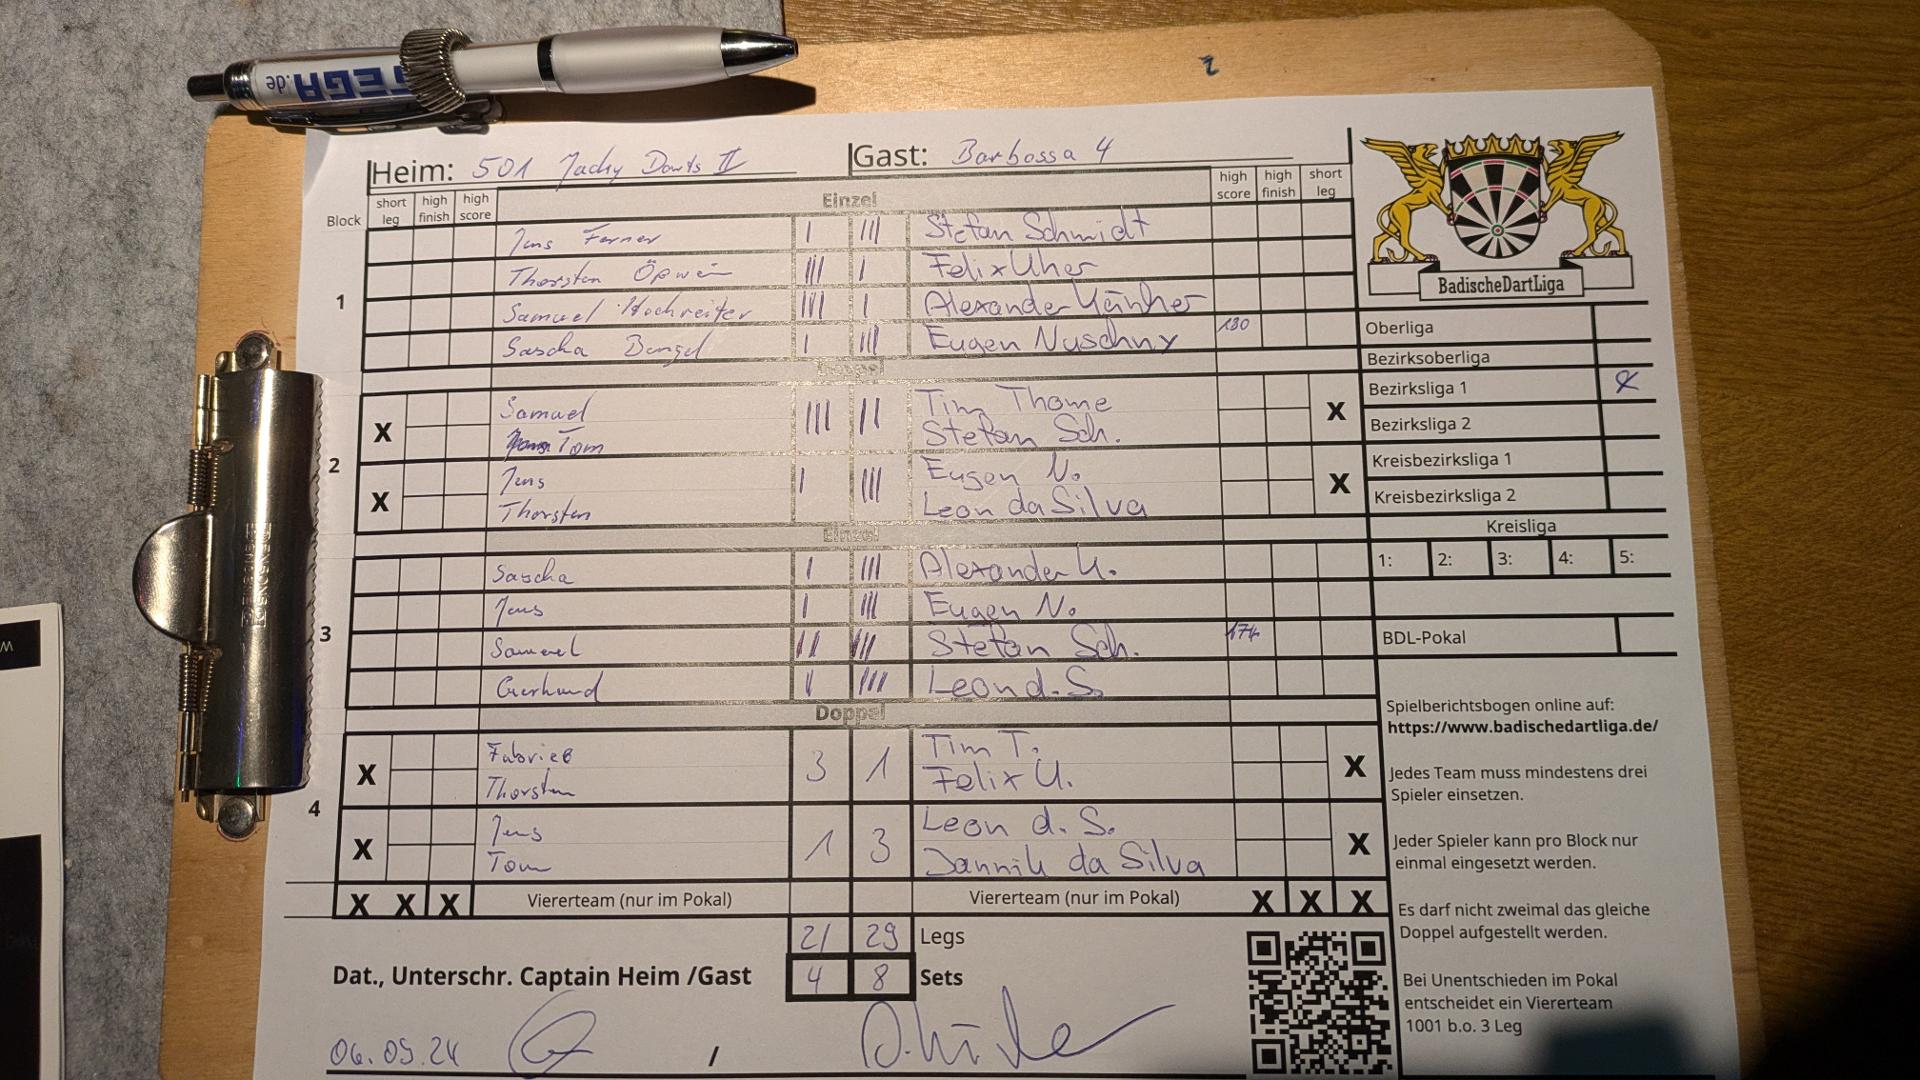 Heim: 501 Jacky Darts II Gast: Barbossa 4
Block short leg high finish high score Einzel high score high finish short leg
1
Jens Ferner I III Stefan Schmidt
Thorsten III I Felix Uher
Samuel Hochreiter III I Alexander
Sascha Bengel I III Eugen Nuschny 180
Doppel
2
X Samuel III II Tim Thome X
Tom Stefan Sch.
X Jens I III Eugen N. X
Thorsten Leon da Silva
Einzel
3
Sascha I III Alexander K.
Jens I III Eugen N.
Samuel II III Stefan Sch. 174
Gerhard II III Leon d. S.
Doppel
4
X Fabrice 3 1 Tim T. X
Thorsten Felix U.
X Jens 1 3 Leon d. S. X
Tom Jannik da Silva
X X X Viererteam (nur im Pokal) Viererteam (nur im Pokal) X X X
21 29 Legs
Dat., Unterschr. Captain Heim /Gast 4 8 Sets
06.09.24 /
BadischeDartLiga
Oberliga
Bezirksoberliga
Bezirksliga 1 X
Bezirksliga 2
Kreisbezirksliga 1
Kreisbezirksliga 2
Kreisliga
1: 2: 3: 4: 5:
BDL-Pokal
Spielberichtsbogen online auf:
https://www.badischedartliga.de/
Jedes Team muss mindestens drei
Spieler einsetzen.
Jeder Spieler kann pro Block nur
einmal eingesetzt werden.
Es darf nicht zweimal das gleiche
Doppel aufgestellt werden.
Bei Unentschieden im Pokal
entscheidet ein Viererteam
1001 b.o. 3 Leg